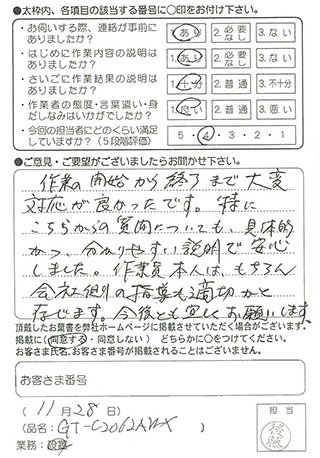 ●太枠内、各項目の該当する番号に〇印をお付け下さい。
・お伺いする際、連絡が事前にありましたか? 1.あり 2.必要なし 3.ない
・はじめに作業内容の説明はありましたか? 1.あり 2.必要なし 3.ない
・さいごに作業結果の説明はありましたか? 1.十分 2.普通 3.不十分
・作業者の態度・言葉遣い・身だしなみはいかがでしたか? 1.良い 2.普通 3.悪い
・今回の担当者にどのくらい満足していますか?(5段階評価) 5・4・3・2・1
●ご意見・ご要望がございましたらお聞かせ下さい。
作業の開始から終了まで大変
対応が良かったです。特に
こちらからの質問についても、具体的
かつ、分かりやすい説明で安心
しました。作業員本人は、もちろん
会社側の指導も適切かと
存じます。今後とも宜しくお願いします
頂戴したお葉書を弊社ホームページに掲載させていただく場合がございます。
掲載に(同意する・同意しない) どちらかに〇をつけてください。
お客さま氏名、お客さま番号が掲載されることはございません。
お客さま番号
(11月28日)
(品名:GT-C2062AWX)
業務:
担当
後藤